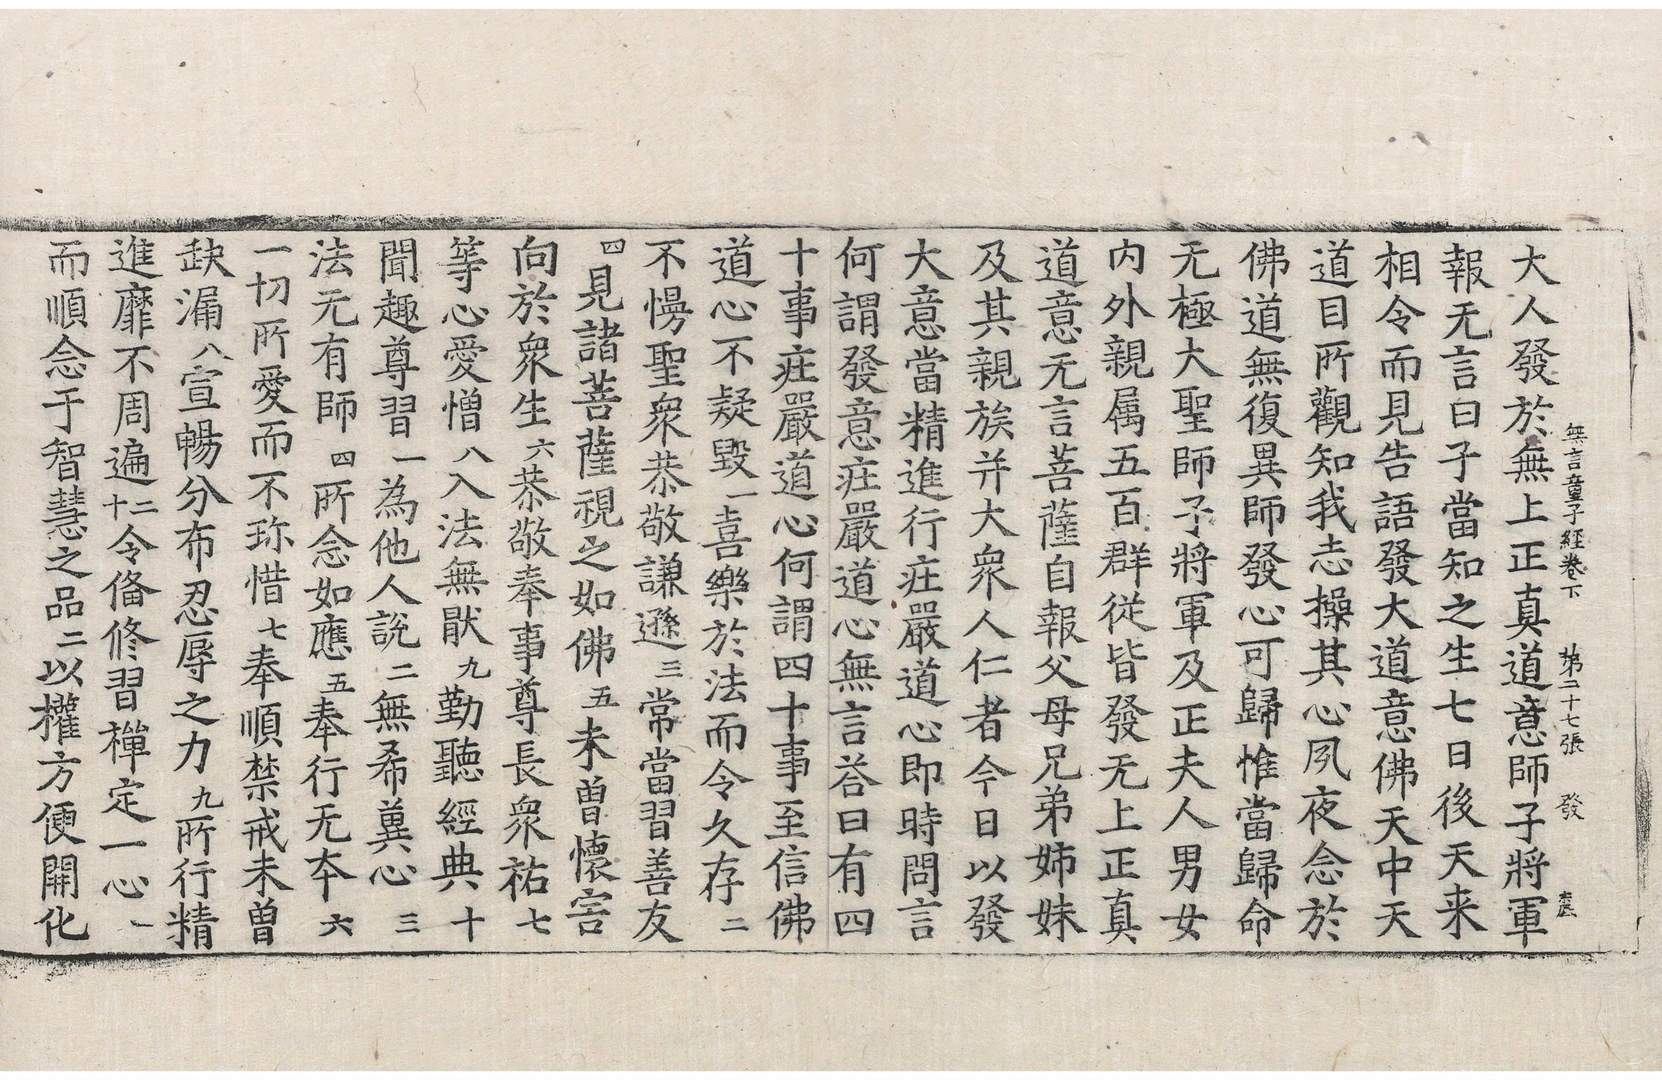 無言童子經卷下 第二十七張 發
大人發於無上正真道意師子將軍
報无言曰子當知之生七日後天来
相令而見告語發大道意佛天中天
道目所觀知我志操其心夙夜念於
佛道無復異師發心可歸惟當歸命
无極大聖師子將軍及正夫人男女
内外親属五百群從皆發无上正真
道意无言菩薩自報父母兄弟姉妹
及其親族并大衆人仁者今日以發
大意當精進行疘嚴道心即時問言
何謂發意疘嚴道心無言荅曰有四
十事疘嚴道心何謂四十事至信佛
道心不疑毀一喜樂於法而令久存二
不慢聖衆恭敬謙遜三常當習善友
四見諸菩薩視之如佛五未曽懐害
向於衆生六恭敬奉事尊長衆祐七
等心愛憎八入法無猒九勤聽經典十
聞趣尊習一為他人說二無希冀心三
法无有師四所念如應五奉行无夲六
一切所愛而不珎惜七奉順禁戒未曽
缺漏八宣暢分布忍辱之力九所行精
進靡不周遍二十令俻修習禪定一心一
而順念于智慧之品二以權方便開化